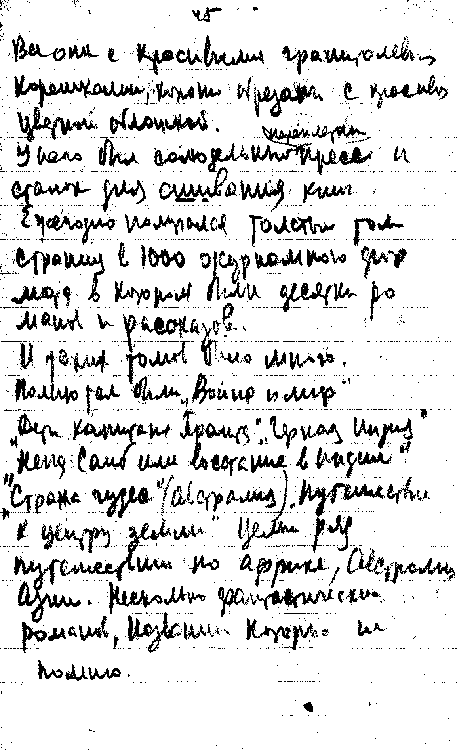 45
Все они с красивыми
корешками, хорошо обрезаны с красивой
цветной обложкой.
переплетный
У него был самодельный пресс и
станок для сшивания книг
Ежегодно получался толстый том
страниц в 1000 журнального фор
мата в котором были десятки ро
манов и рассказов.
И таких томов было много.
Помню там были „Война и мир"
„Дети капитана Гранта", „Черная Индия"
„Нена Саиб или восстание в Индии"
„Страна чудес" (Австралия), „Путешествие
к центру земли" Целый ряд
путешествий по Африке, Австралии
Азии. Несколько фантастических
романов, названий которых не
помню.